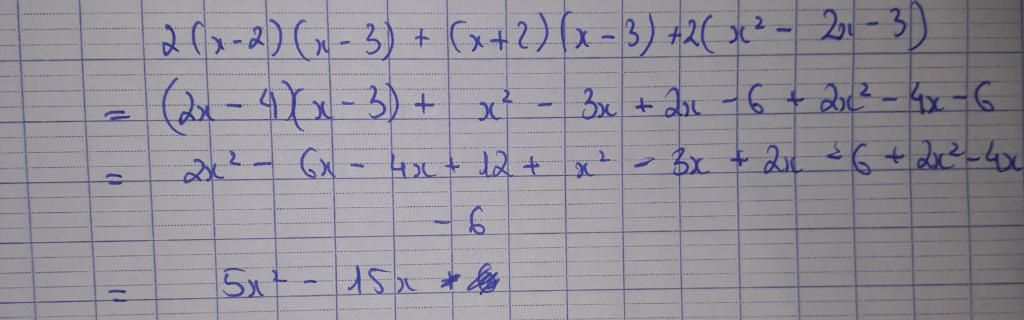 2(x-2)(x-3) + (x+2)(x-3)+2(x² - 2x-3)
= (2x-4)(x-3) + x² - 3x + 2x - 6 + 2x² - 4x - 6
= 2x² - 6x - 4x + 12 + x² - 3x + 2x - 6 + 2x² - 4x
- 6
= 5x² - 15x